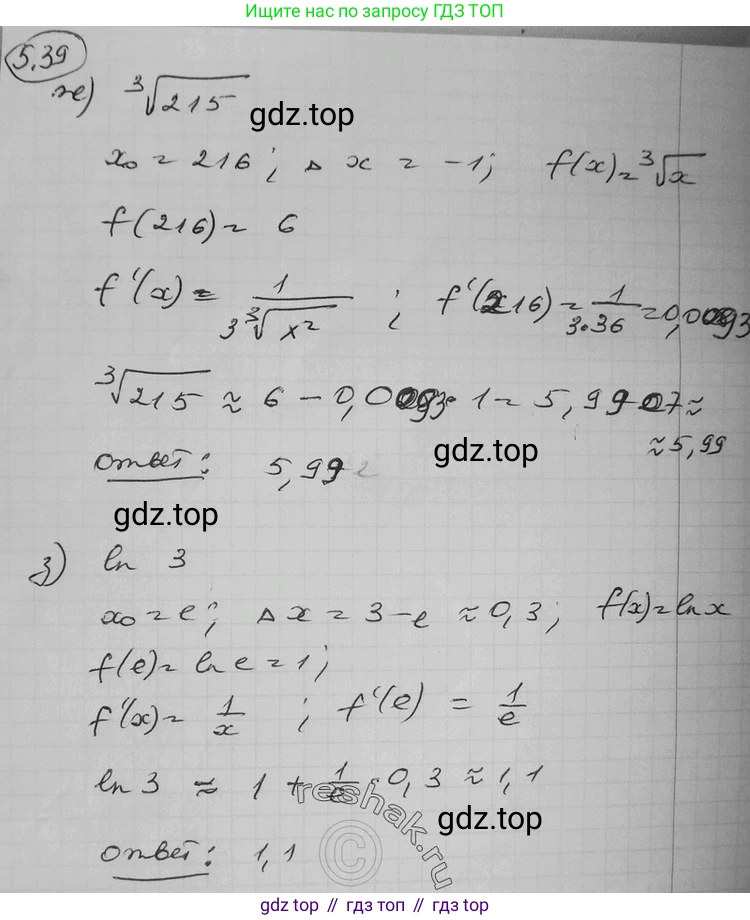 Ищите нас по запросу ГДЗ ТОП
5.39
же) ∛215
gdz.top
x₀ = 216; Δx = -1; f(x) = ∛x
f(216) = 6
f'(x) = 1/(3∛x²); f'(216) = 1/(3·36) = 0,0093
∛215 ≈ 6 - 0,0093·1 = 5,9907 ≈
≈ 5,99
gdz.top
Ответ: 5,99
gdz.top
з) ln 3
x₀ = e; Δx = 3-e ≈ 0,3; f(x) = ln x
f(e) = ln e = 1;
f'(x) = 1/x; f'(e) = 1/e
ln 3 ≈ 1 + 1/e · 0,3 ≈ 1,1
reshak.ru
gdz.top
Ответ: 1,1
©
gdz.top // гдз топ // gdz.top